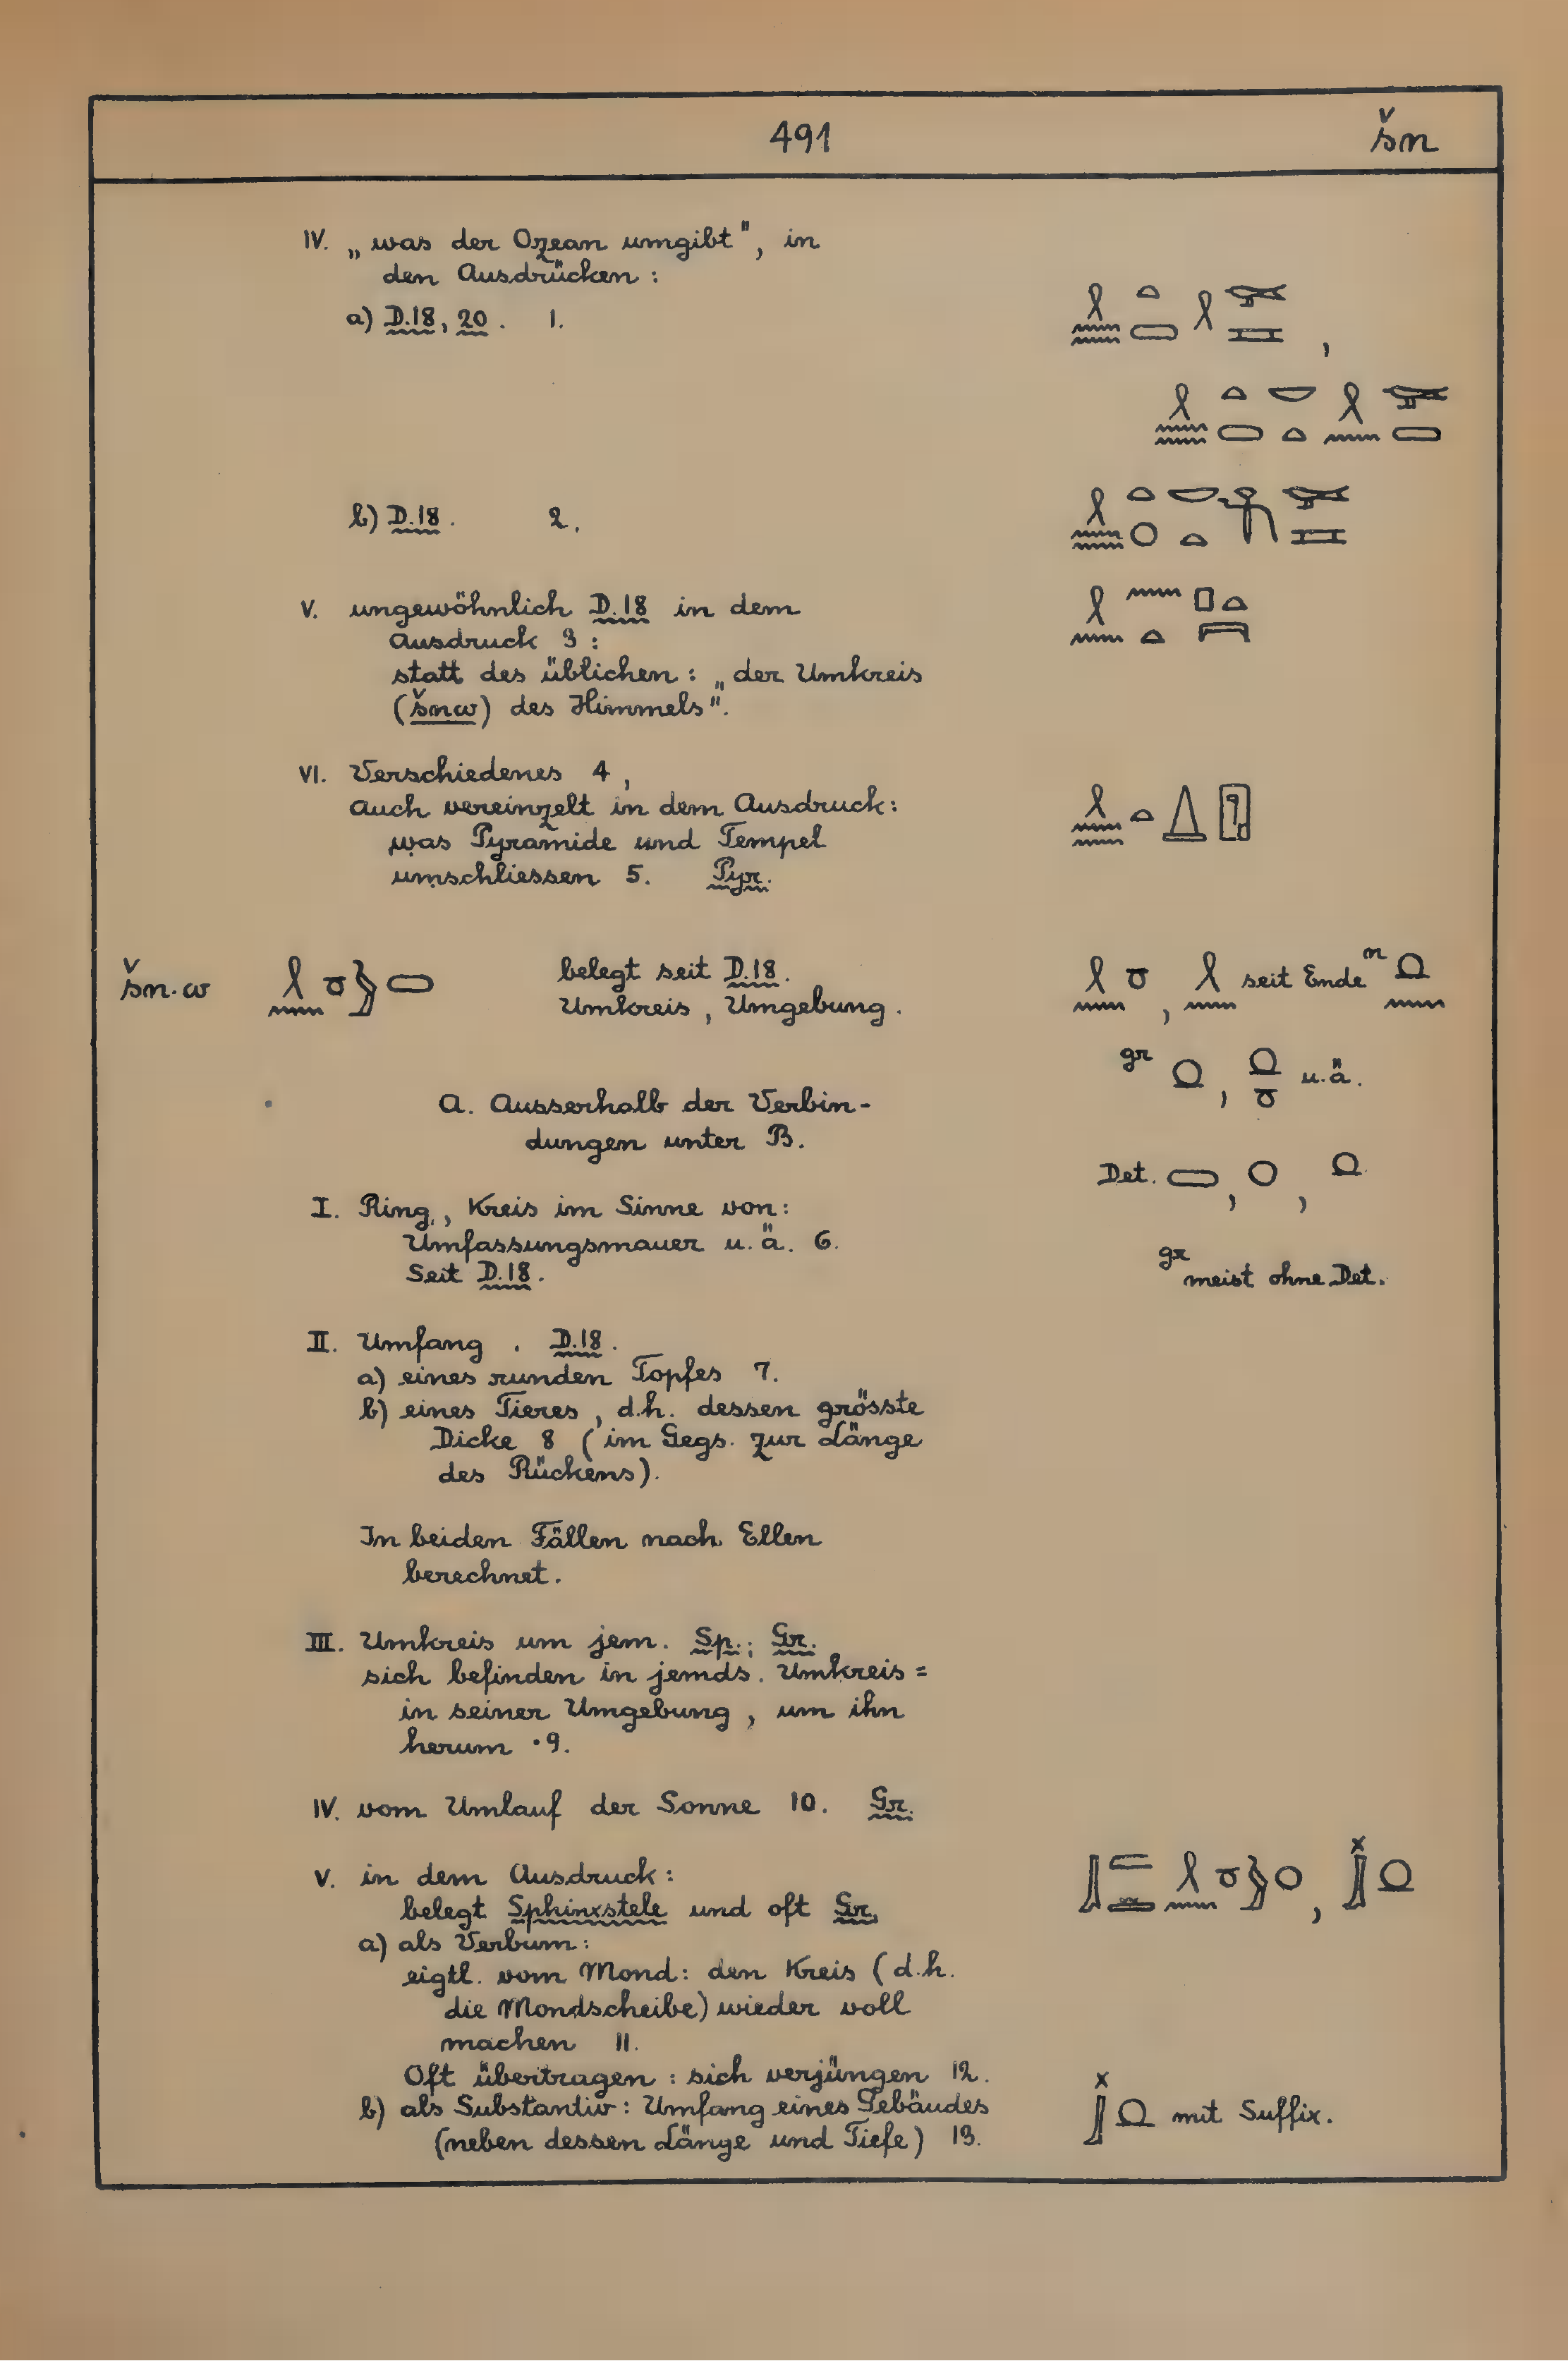 491 šn
IV. „was der Ozean umgibt", in
den Ausdrücken:
a) D.18, 20. 1.
b) D.18. 2.
V. ungewöhnlich D.18 in dem
Ausdruck 3:
statt des üblichen: „der Umkreis
(šnw) des Himmels".
VI. Verschiedenes 4,
auch vereinzelt in dem Ausdruck:
was Pyramide und Tempel
umschliessen 5. Pyr.
šn.w belegt seit D.18.
Umkreis, Umgebung.
seit Ende n
gr u.ä.
A. Ausserhalb der Verbin-
dungen unter B.
Det.
I. Ring, Kreis im Sinne von:
Umfassungsmauer u.ä. 6.
Seit D.18.
gr meist ohne Det.
II. Umfang. D.18.
a) eines runden Topfes 7.
b) eines Tieres, d.h. dessen grösste
Dicke 8 (im Gegs. zur Länge
des Rückens).
In beiden Fällen nach Ellen
berechnet.
III. Umkreis um jem. Sp.; Gr.
sich befinden in jemds. Umkreis =
in seiner Umgebung, um ihn
herum 9.
IV. vom Umlauf der Sonne 10. Gr.
V. in dem Ausdruck:
belegt Sphinxstele und oft Gr.
a) als Verbum:
eigtl. vom Mond: den Kreis (d.h.
die Mondscheibe) wieder voll
machen 11.
Oft übertragen: sich verjüngen 12.
b) als Substantiv: Umfang eines Gebäudes
(neben dessen Länge und Tiefe) 13.
mit Suffix.